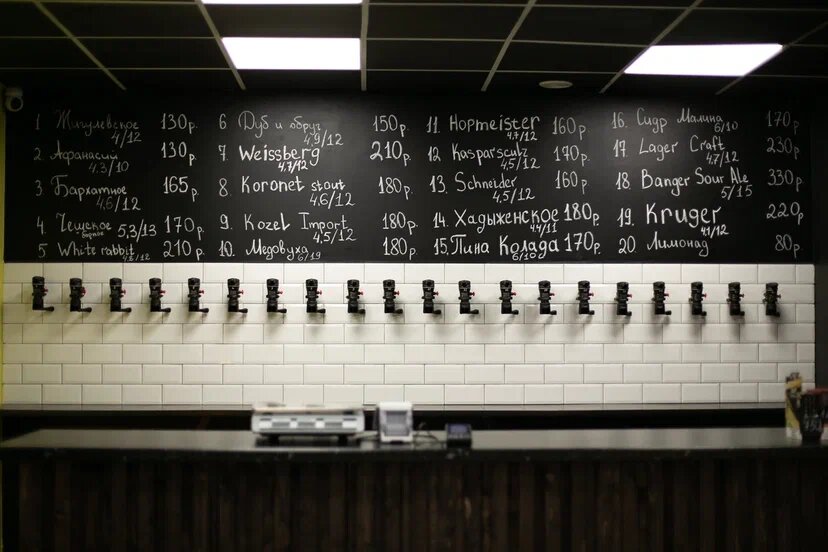 1 Жигулевское 130р.
4/12
2. Афанасий 130р.
4.3/10
3. Бархатное 165р.
4.6/12
4. Чешское 5,3/13 170р.
5 White rabbit 210р.
4.8/12
6 Дуб и обруз 150р.
4.9/12
7. Weissberg 210р.
4.7/12
8 Koronet stout 180р.
4.6/12
9. Kozel Import 180р.
4,5/12
10. Медовуха 180р.
6/19
11. Hopmeister 160р.
4.7/12
12 Kasparsculz 170р.
4.5/12
13. Schneider 160р.
4.5/12
14. Хадыженское 180р.
4.4/11
15. Пина Колада 170р.
6/10
16. Сидр Малина 170р.
6/10
17. Lager Craft 230р.
4.7/12
18 Banger Sour Ale 330р.
5/15
19. Kruger 220р.
4.1/12
20 Лимонад 80р.